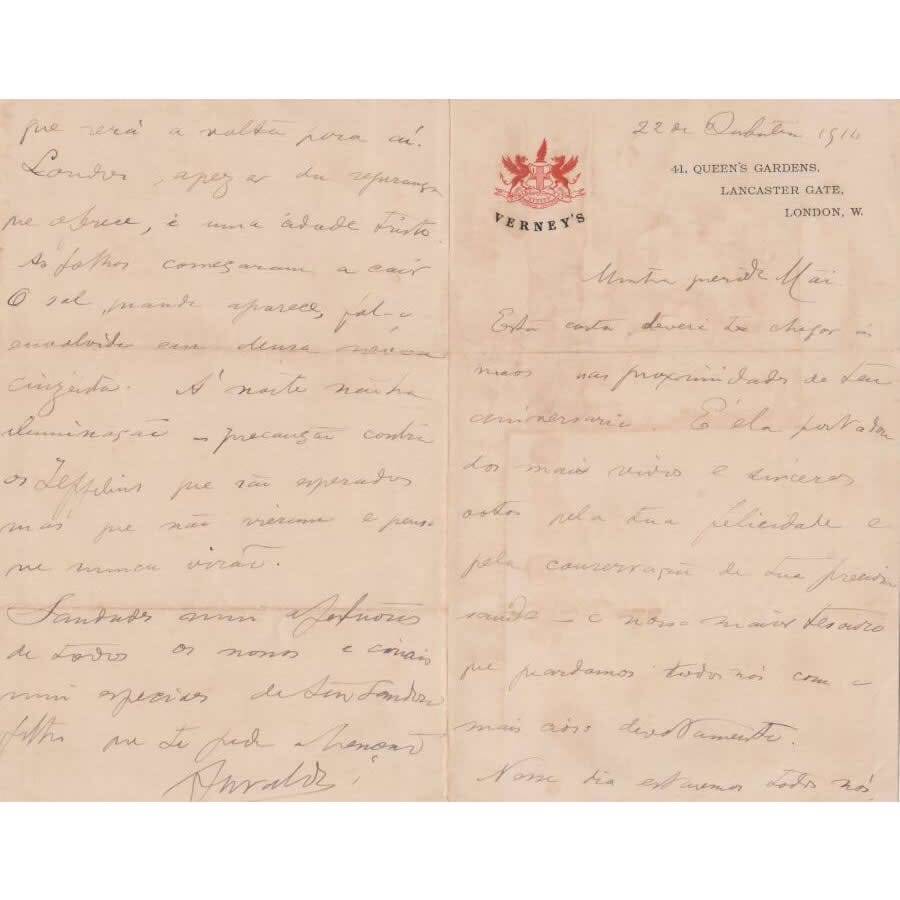 22 de Outubro 1914
VERNEY'S
41, QUEEN'S GARDENS,
LANCASTER GATE,
LONDON, W.
Minha querida Mãi
Esta carta deverá te chegar ás
mãos nas proximidades de teu
anniversario. É ela portadora
dos mais vivos e sinceros
votos pela tua felicidade e
pela conservação de tua preciosa
saude – o nosso maior tesouro
que guardamos todos nós com o
mais cioso devotamento.
Nesse dia estaremos todos nós
que será a volta para aí.
Londres, apezar da segurança
que oferece, é uma cidade triste.
As folhas começaram a cair
O sol, quando aparece, fal-o
envolvido em densa nevoa
cinzenta. Á noite nenhuma
iluminação – precaução contra
os Zeppelins que são esperados
mas que não vieram e penso
que nunca virão.
Saudades mui afetuosas
de todos os nossos e
mui especiaes de teu
filho que te pede a benção